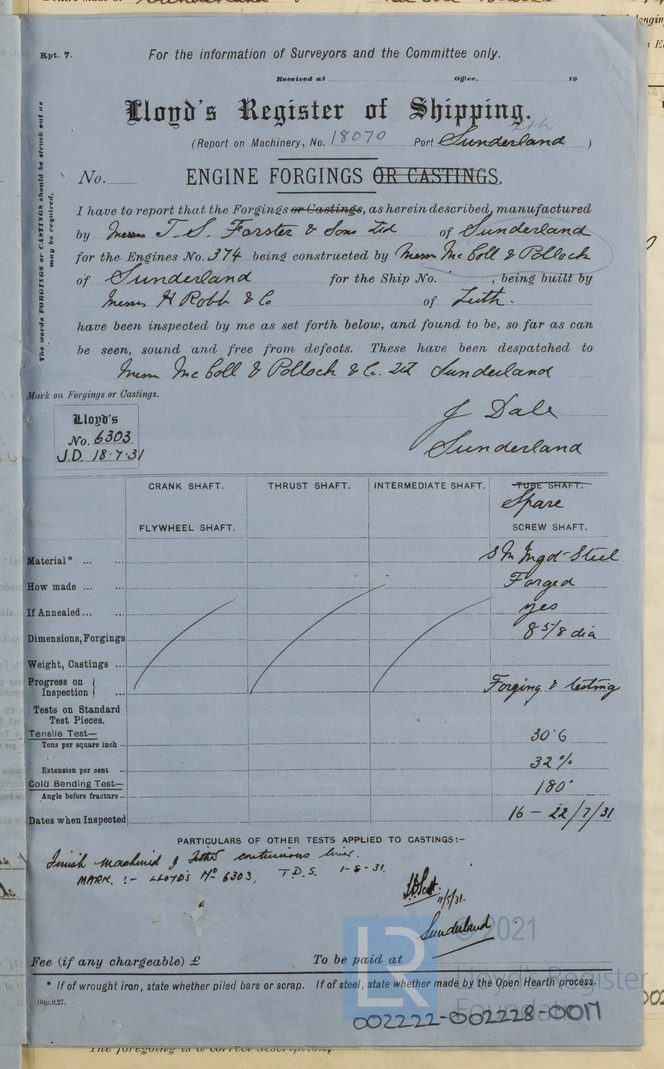 Rpt. 7.
For the information of Surveyors and the Committee only.
Received at Office, 19
Lloyd's Register of Shipping.
(Report on Machinery, No. 18070 Port Sunderland )
No.
ENGINE FORGINGS OR CASTINGS.
The words FORGINGS or CASTINGS should be struck out as
may be required.
I have to report that the Forgings or Castings, as herein described, manufactured
by Messrs T. S. Forster & Sons Ltd of Sunderland
for the Engines No. 374 being constructed by Messrs McColl & Pollock
of Sunderland for the Ship No. , being built by
Messrs H Robb & Co of Leith.
have been inspected by me as set forth below, and found to be, so far as can
be seen, sound and free from defects. These have been despatched to
Messrs McColl & Pollock & Co. Ltd Sunderland
Mark on Forgings or Castings.
Lloyd's
No. 6303
J.D. 18.7.31
J Dale
Sunderland
CRANK SHAFT. THRUST SHAFT. INTERMEDIATE SHAFT. TUBE SHAFT.
Spare
FLYWHEEL SHAFT. SCREW SHAFT.
Material* ... ... S M Ingot Steel
How made ... ... Forged
If Annealed ... ... yes
Dimensions, Forgings 8 5/8 dia
Weight, Castings ...
Progress on
Inspection ... Forging & testing
Tests on Standard
Test Pieces.
Tensile Test—
Tons per square inch 30.6
Extension per cent 32%
Cold Bending Test—
Angle before fracture 180°
Dates when Inspected 16 - 22/7/31
PARTICULARS OF OTHER TESTS APPLIED TO CASTINGS:—
Finish machined & fitted continuous liner.
MARK :- LLOYD'S No 6303, T.D.S. 1-8-31.
Sunderland
Fee (if any chargeable) £ To be paid at
* If of wrought iron, state whether piled bars or scrap. If of steel, state whether made by the Open Hearth process.
10m.9.27.
LR
© 2021
Lloyd's Register
Foundation
002222-002228-0017
The foregoing is a correct description,